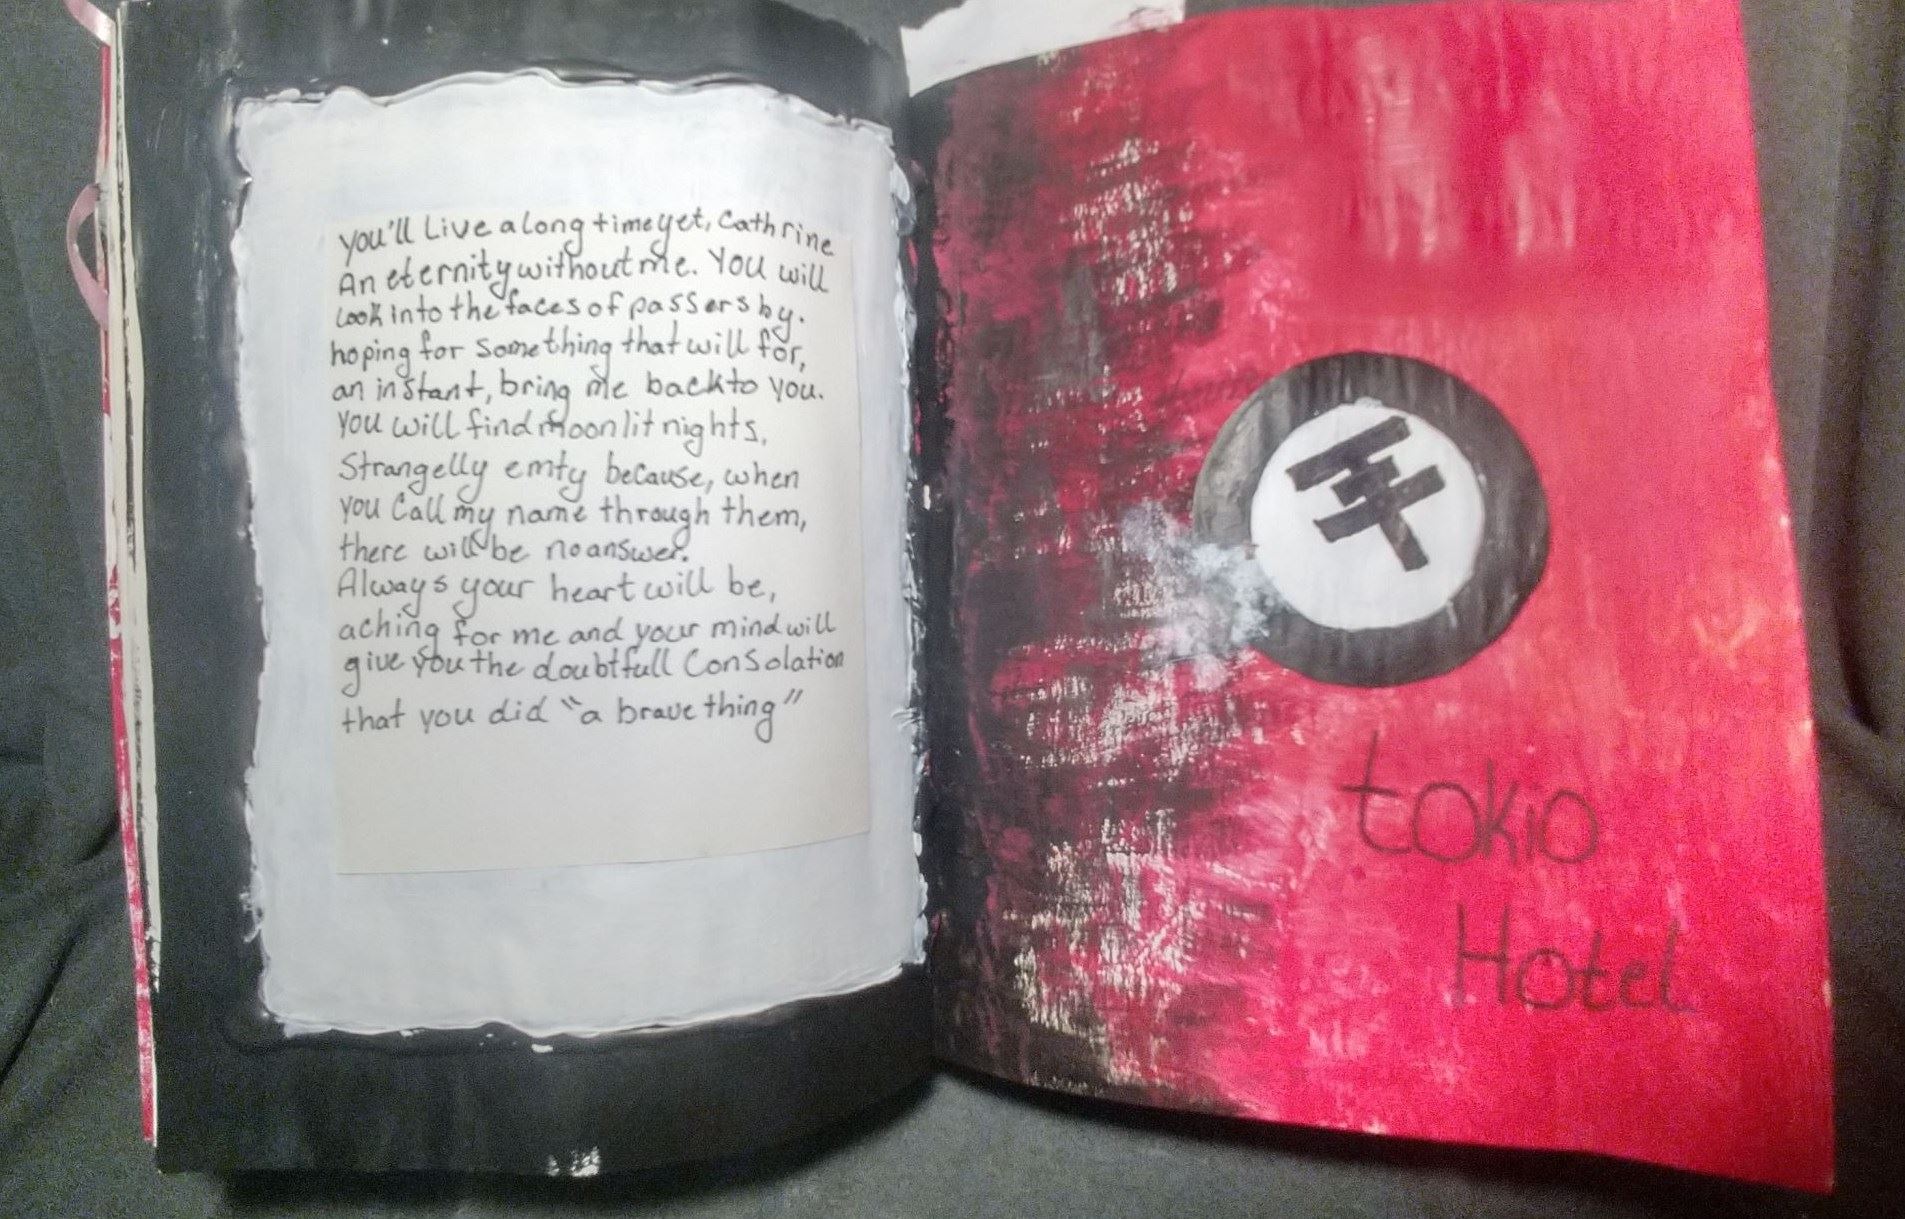 You'll Live a long time yet, Cathrine
An eternity without me. You will
Look into the faces of passers by.
hoping for something that will for,
an instant, bring me back to you.
You will find moonlit nights,
Strangelly emty because, when
you Call my name through them,
there will be no answer.
Always your heart will be,
aching for me and your mind will
give you the doubtfull Consolation
that you did "a brave thing"
tokio
Hotel